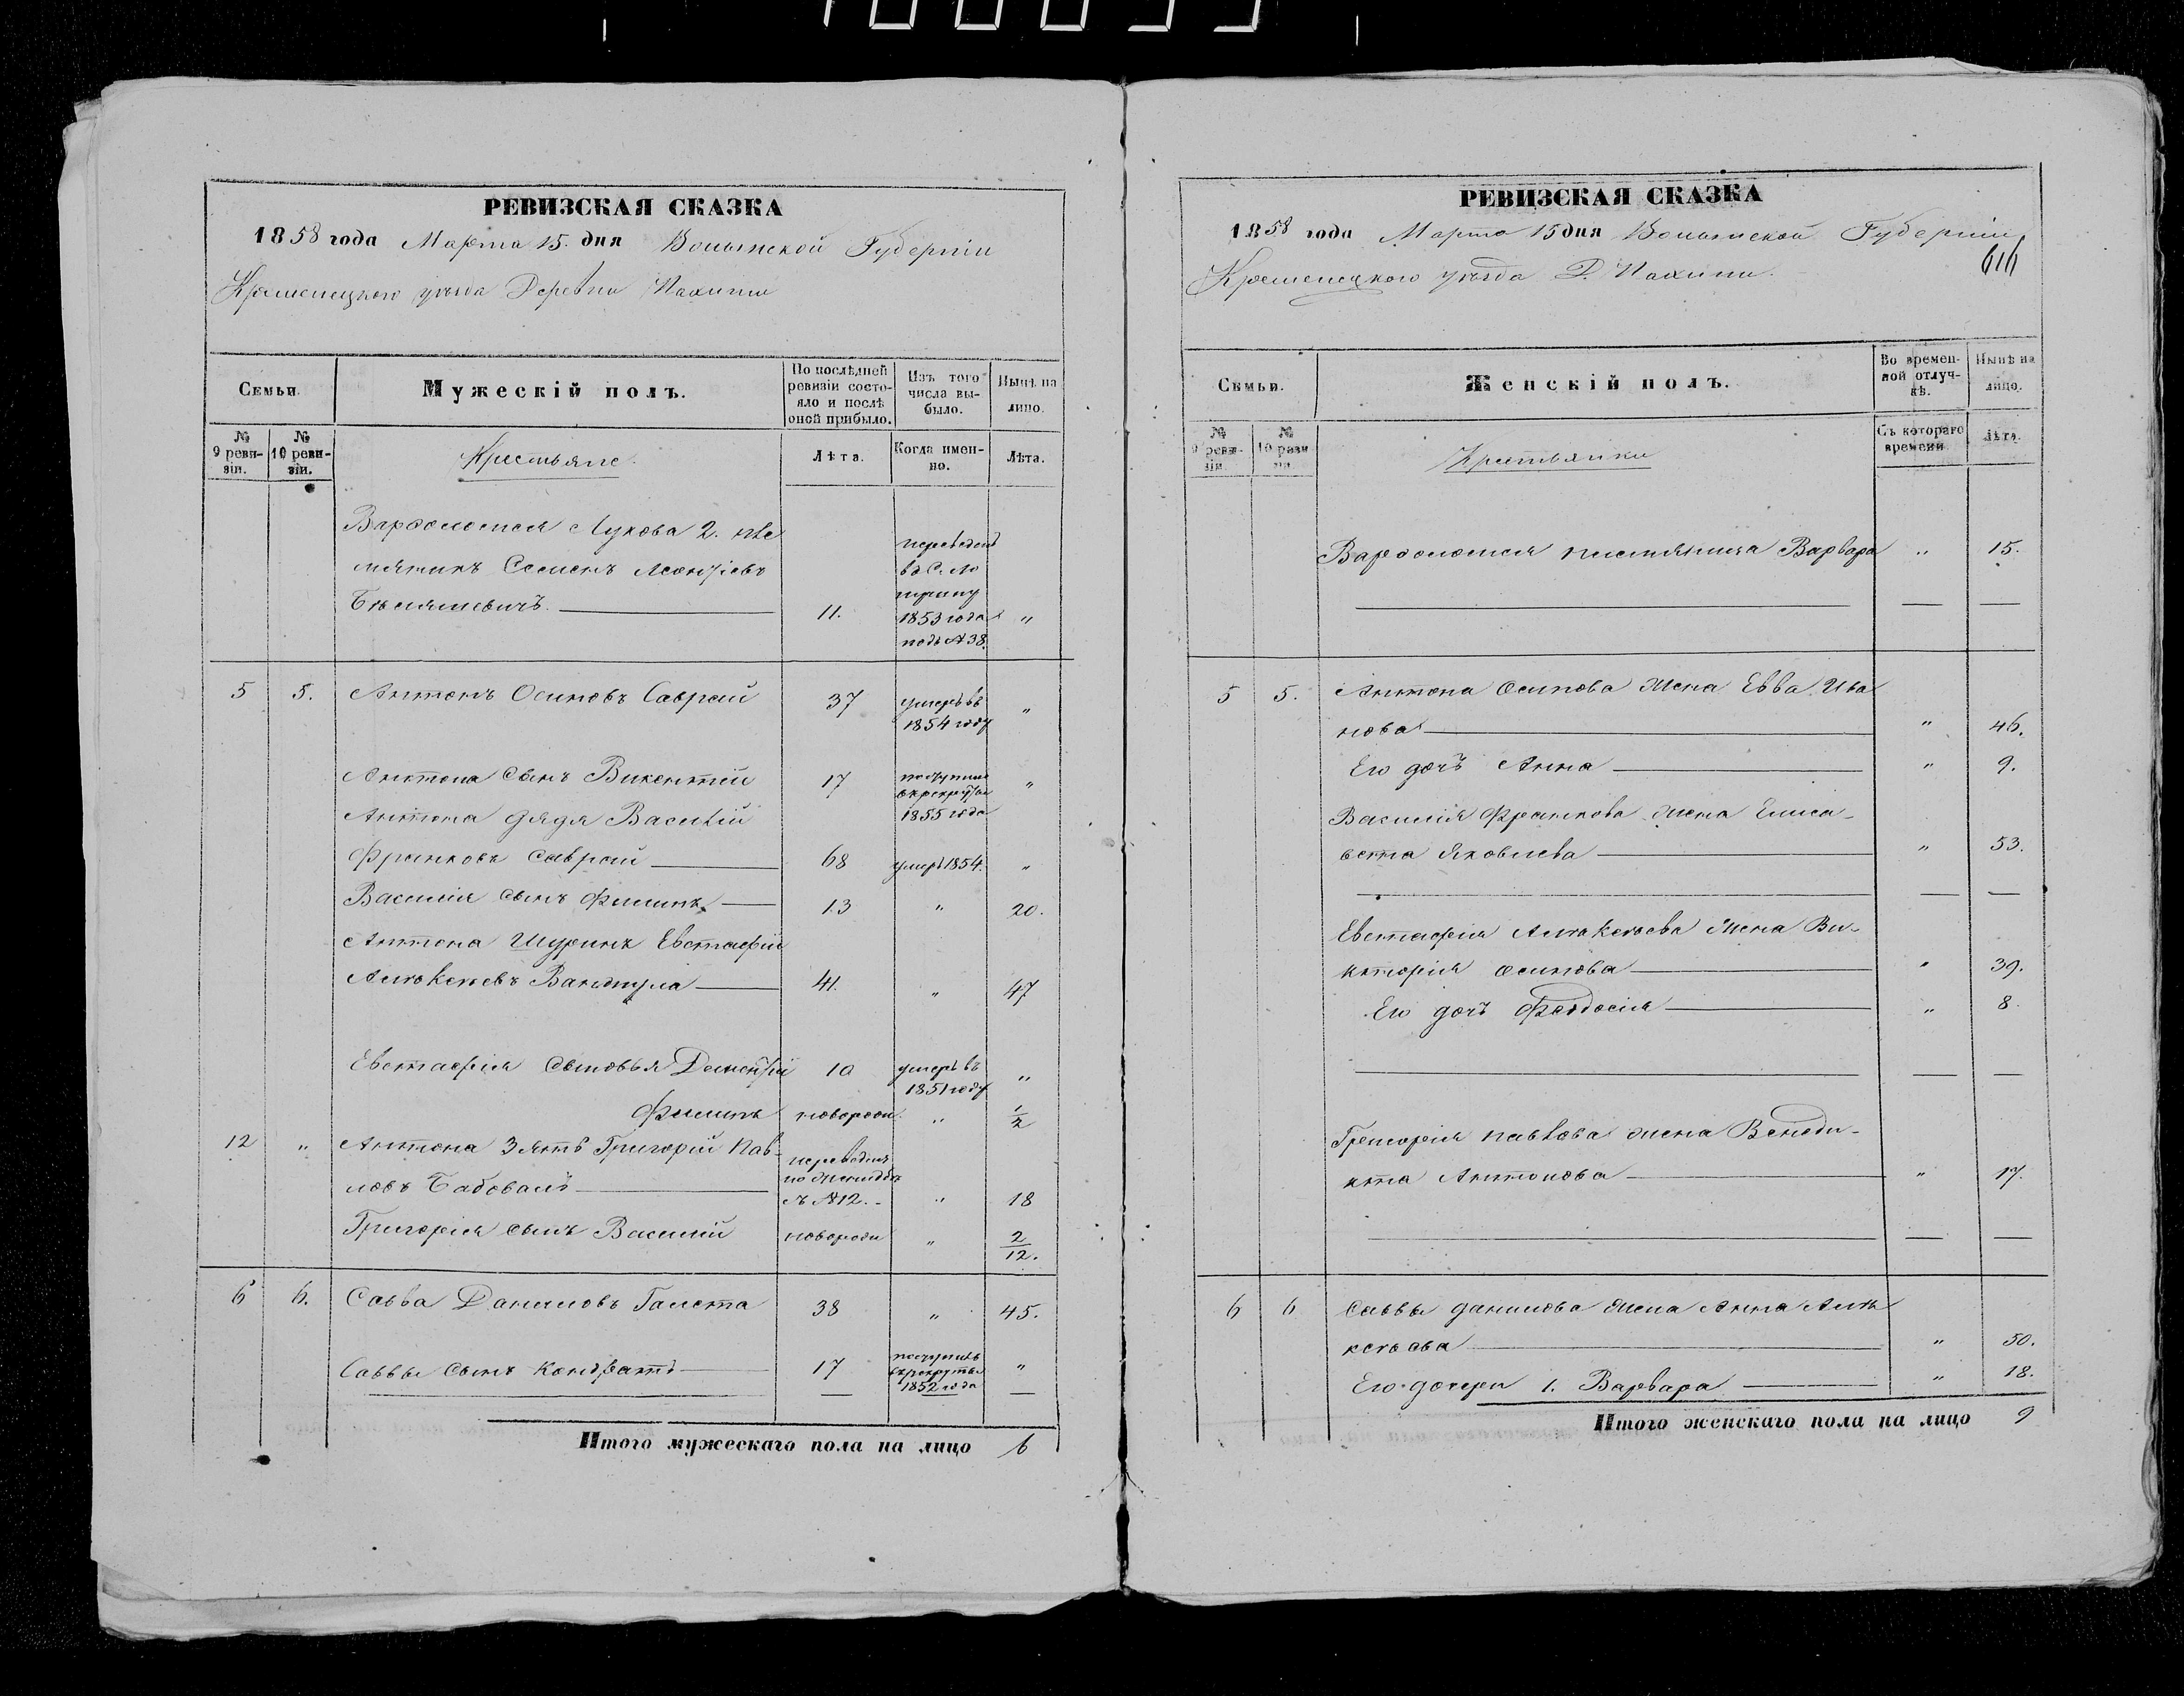 РЕВИЗСКАЯ СКАЗКА
1858 года Марта 15. дня Волынской Губерніи
Кременецкого уѣзда Деревни Пахини
Семьи. Мужескій полъ. По послѣдней ревизіи состояло и послѣ оной прибыло. Изъ того числа выбыло. Нынѣ на лицо.
№ 9 ревизіи. № 10 ревизіи. Крестьяне. Лѣта. Когда именно. Лѣта.
Варфоломея Лукова 2. пле
мяникъ Семенъ Леонтіевъ
11. переведенъ в С. 1853 года подъ №38. "
5 5. Антонъ Осиповъ Саврай 37 умеръ въ 1854 году "
Антона сынъ Викентій 17 поступил в рекруты 1855 года "
Антона дядя Василій
Франковъ Саврай 68 умеръ 1854. "
Василія сынъ Филипъ 13 " 20.
Антона Шуринъ Евстафій
Алексѣевъ 41. " 47
Евстафія сыновья Дементій 10 умеръ въ 1851 году "
Филипъ новорожд. " 1/2
12 " Антона Зять Григорій Пав-
ловъ переведенъ съ №12. " 18
Григорія сынъ Василій новорожд " 2/12.
6 6. Савва Даниловъ Галета 38 " 45.
Саввы сынъ Кондратъ 17 поступилъ в рекруты 1852 года "
Итого мужескаго пола на лицо 6
РЕВИЗСКАЯ СКАЗКА
1858 года Марта 15 дня Волынской Губерніи
616
Кременецкого уѣзда Д. Пахини.
Семьи. Женскій полъ. Во временной отлучкѣ. Нынѣ на лицо.
№ 9 ревизіи. № 10 ревизіи. Крестьянки Съ котораго времени Лѣта.
Варфоломея племяница Варвара " 15.
5 5. Антона Осипова жена Евва Ива
нова " 46.
Его дочъ Анна " 9.
Василія Франкова жена Елиса-
вета Яковлева " 53.
Евстафія Алексѣева жена Ви-
кторія Осипова " 39.
Его дочъ Феодосія " 8.
Григорія Павлова жена Венеди-
кта Антонова " 17.
6 6 Саввы Данилова жена Анна Але
ксѣева " 50.
Его дочери 1. Варвара " 18.
Итого женскаго пола на лицо 9